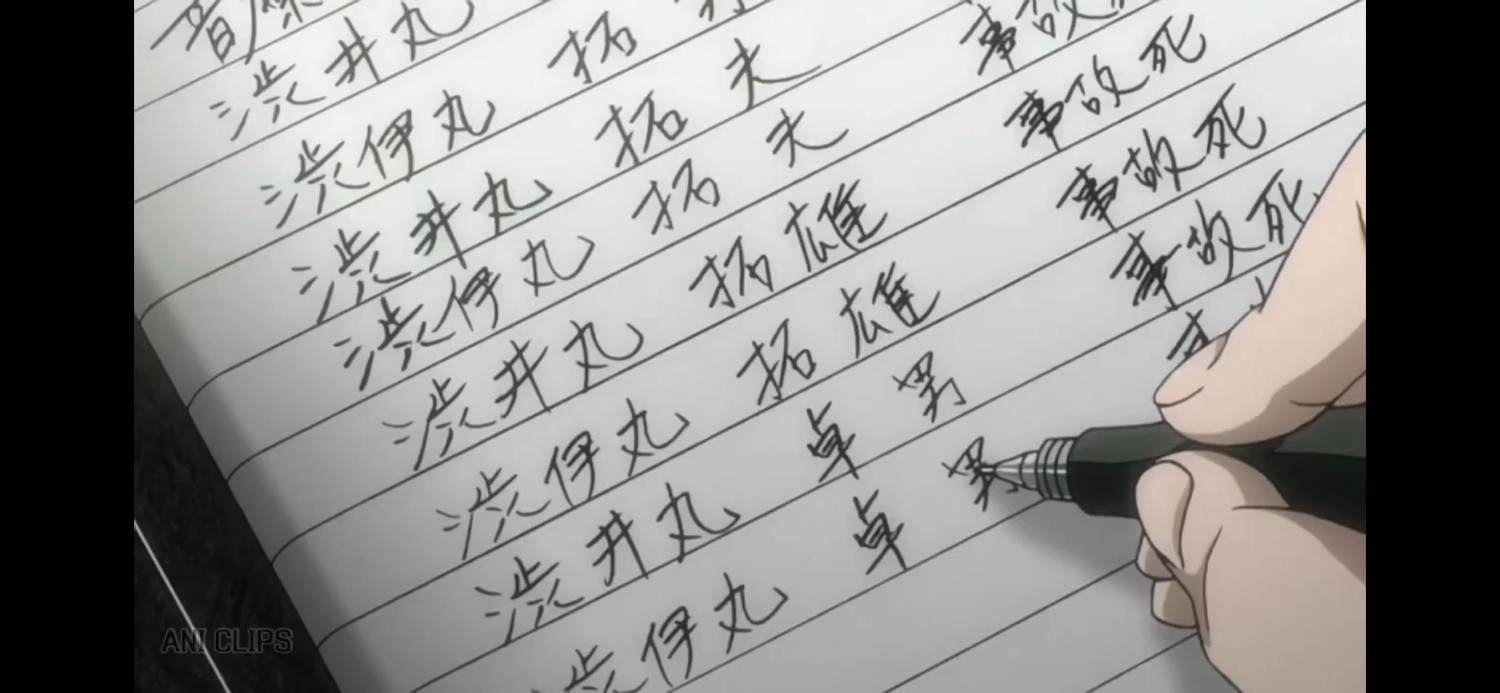 渋井丸
渋伊丸 拓男
渋井丸 拓夫
渋伊丸 拓夫 事故
渋井丸 拓雄 事故死
渋伊丸 拓雄 事故死
渋井丸 卓男 事故死
渋伊丸 卓男
ANI CLIPS